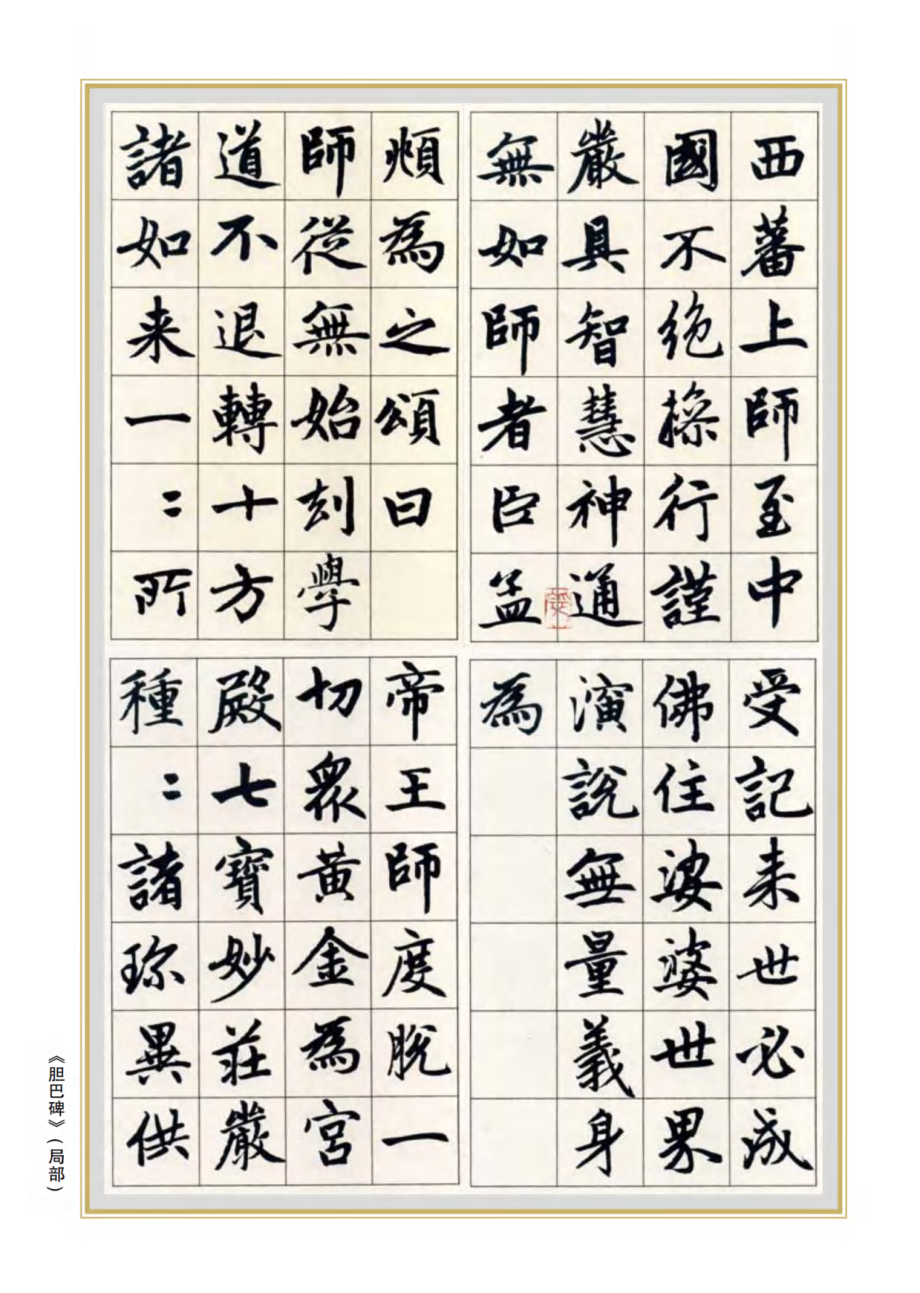 西蕃上師至中
國不絶操行謹
嚴具智慧神通
無如師者臣孟
頫為之頌曰
師從無始刧學
道不退轉十方
諸如来一〻所
受記来世必成
佛住娑婆世界
演說無量義身
為
帝王師度脫一
切衆黃金為宮
殿七寶妙莊嚴
種〻諸珎異供
《胆巴碑》(局部)